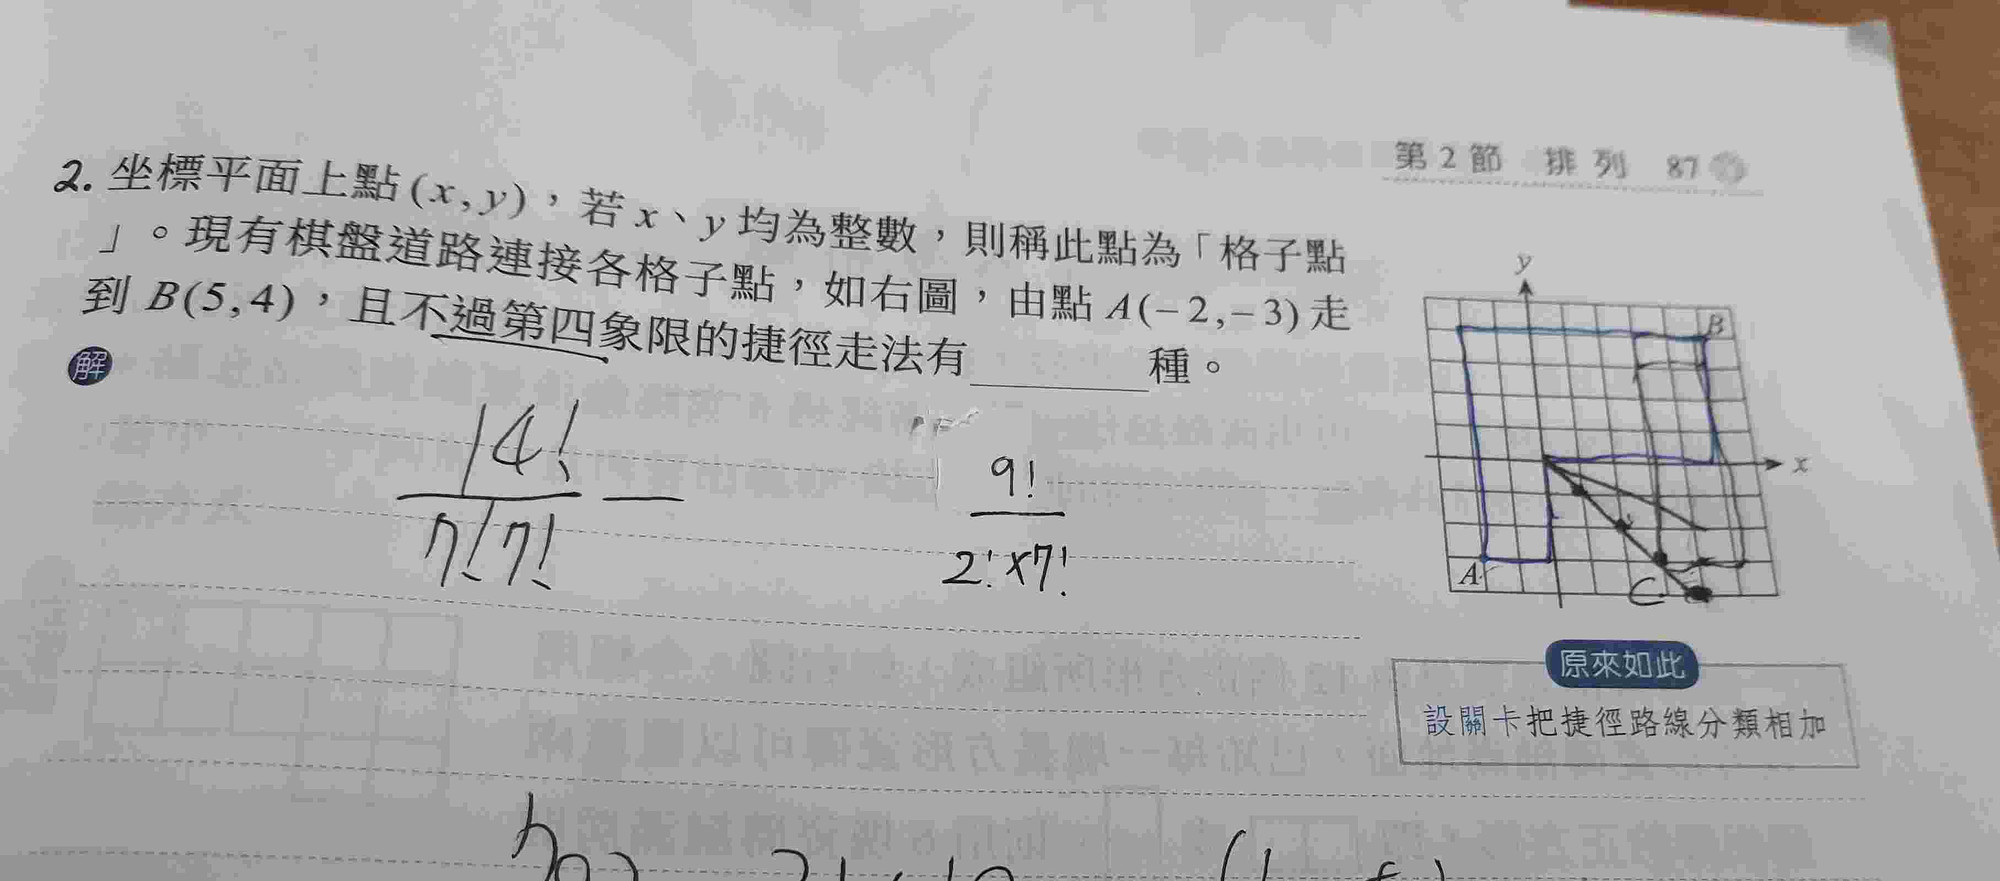 第2節 排列 87
2. 坐標平面上點(x,y),若x、y均為整數,則稱此點為「格子點
」。現有棋盤道路連接各格子點,如右圖,由點A(-2,-3)走
到B(5,4),且不過第四象限的捷徑走法有 種。
解
14!
7!7!
9!
2!×7!
y
B
x
A
C
原來如此
設關卡把捷徑路線分類相加